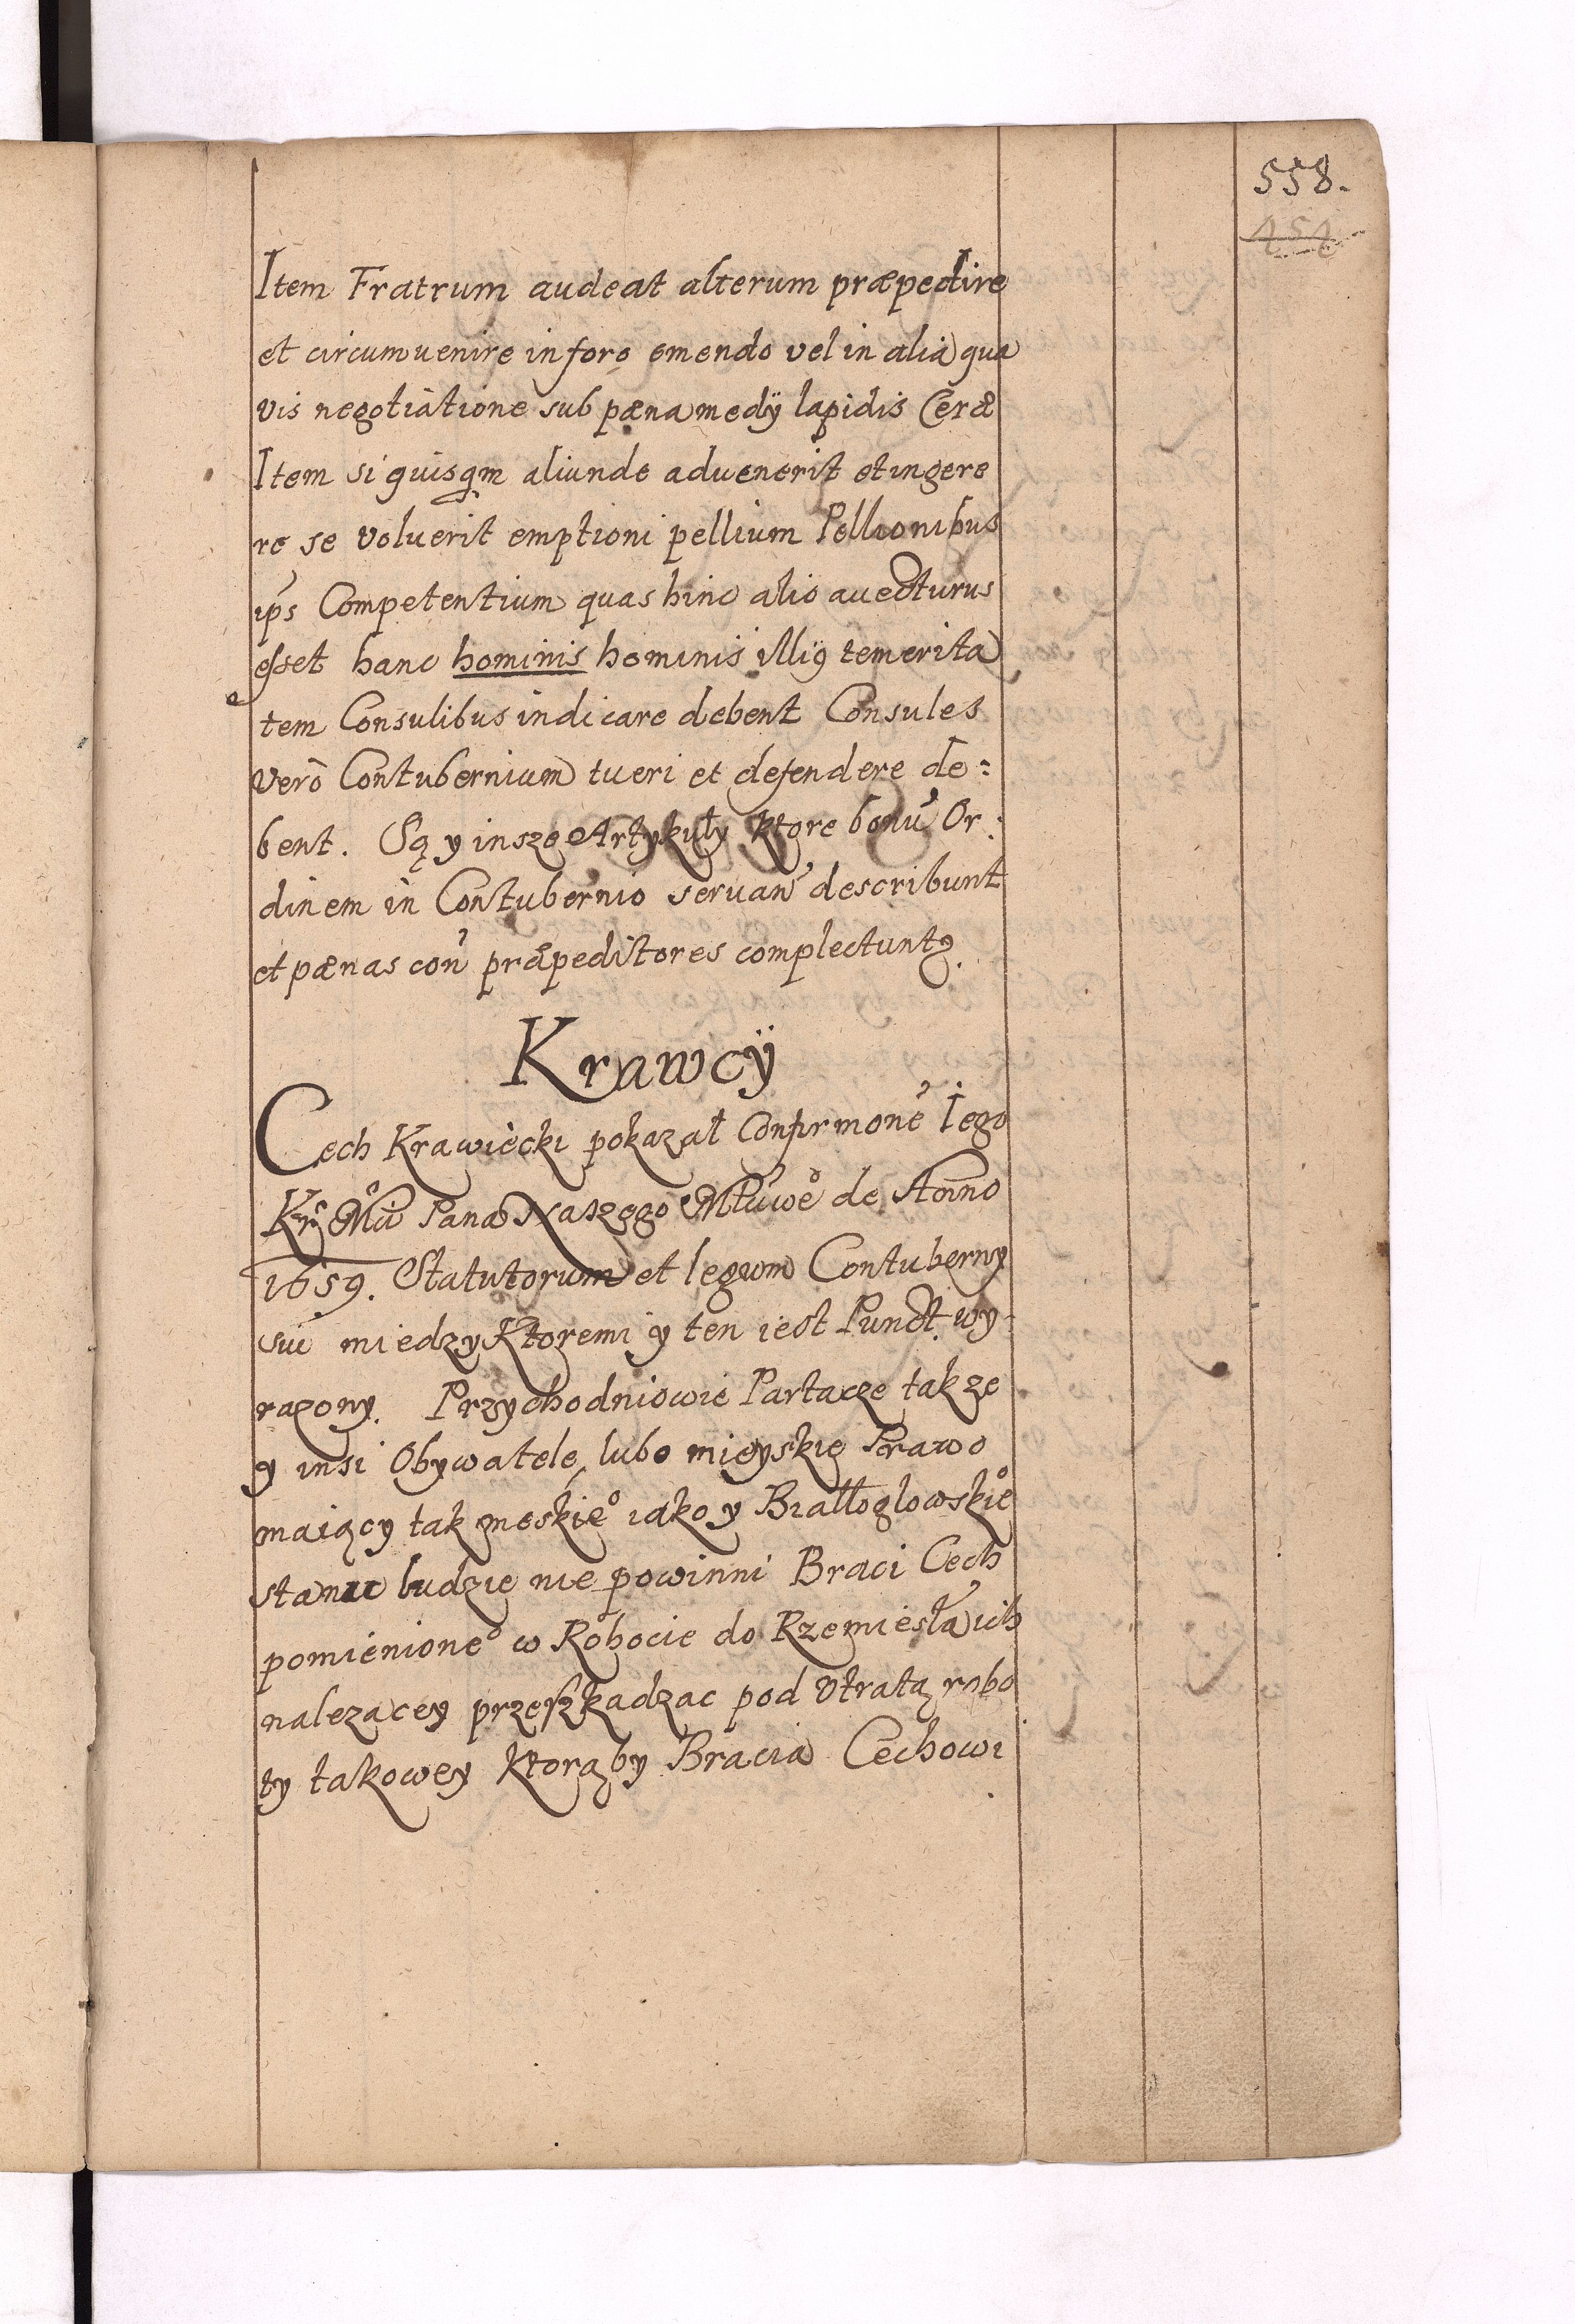 558.
Item Fratrum audeat alterum præpedire
et circumuenire in foro emendo vel in alia qua
vis negotiatione sub pæna medÿ lapidis Ceræ
Item si quisqm aliunde aduenerit et ingere
re se voluerit emptioni pellium Pellionibus
ips Competentium quas hinc alio auecturus
esset hanc hominis hominis illiq temerita
tem Consulibus indicare debent Consules
verò Contubernium tueri et defendere de:
bent. Są y insze Artykuły ktore bonu Or:
dinem in Contubernio seruan describunt
et pænas con præpeditores complectuntq
Krawcÿ
Cech Krawiecki pokazał Confirmone Iego
Kr Mci Pana Naszego de Anno
1659. Statutorum et legum Contuberny
sui miedzy Ktoremi y ten iest Punct wy:
razony. Przychodniowie Partacze takze
y insi Obywatele, lubo mieyskie Prawo
maiący tak meskieo iako y Białłoglowskieo
stanu ludzie nie powinni Braci Cech
pomienioneo w Robocie do Rzemiesła ich
nalezacey przeszkadzac pod Utratą robo
ty takowey Ktorąby Bracia Cechowi